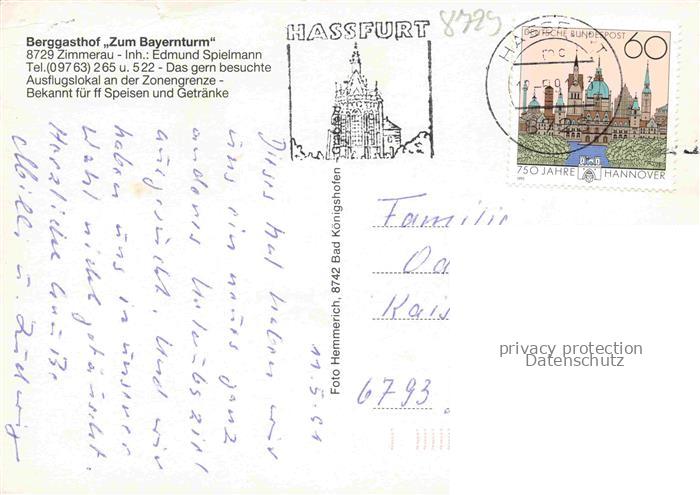 8729
HASSFURT
Berggasthof „Zum Bayernturm“
8729 Zimmerau - Inh.: Edmund Spielmann
Tel.(09763) 265 u. 522 - Das gern besuchte
Ausflugslokal an der Zonengrenze -
Bekannt für ff Speisen und Getränke
DEUTSCHE BUNDESPOST
60
750 JAHRE HANNOVER
11.5.91
Dieses mal haben wir
uns ein neues ganz
anderes Urlaubsziel
ausgesucht. Und wir
haben uns in unserer
Wahl nicht getäuscht.
Herzliche Grüße
u. Ludwig
Foto Hemmerich, 8742 Bad Königshofen - Grabfeld
Familie
Kais
6793
privacy protection
Datenschutz